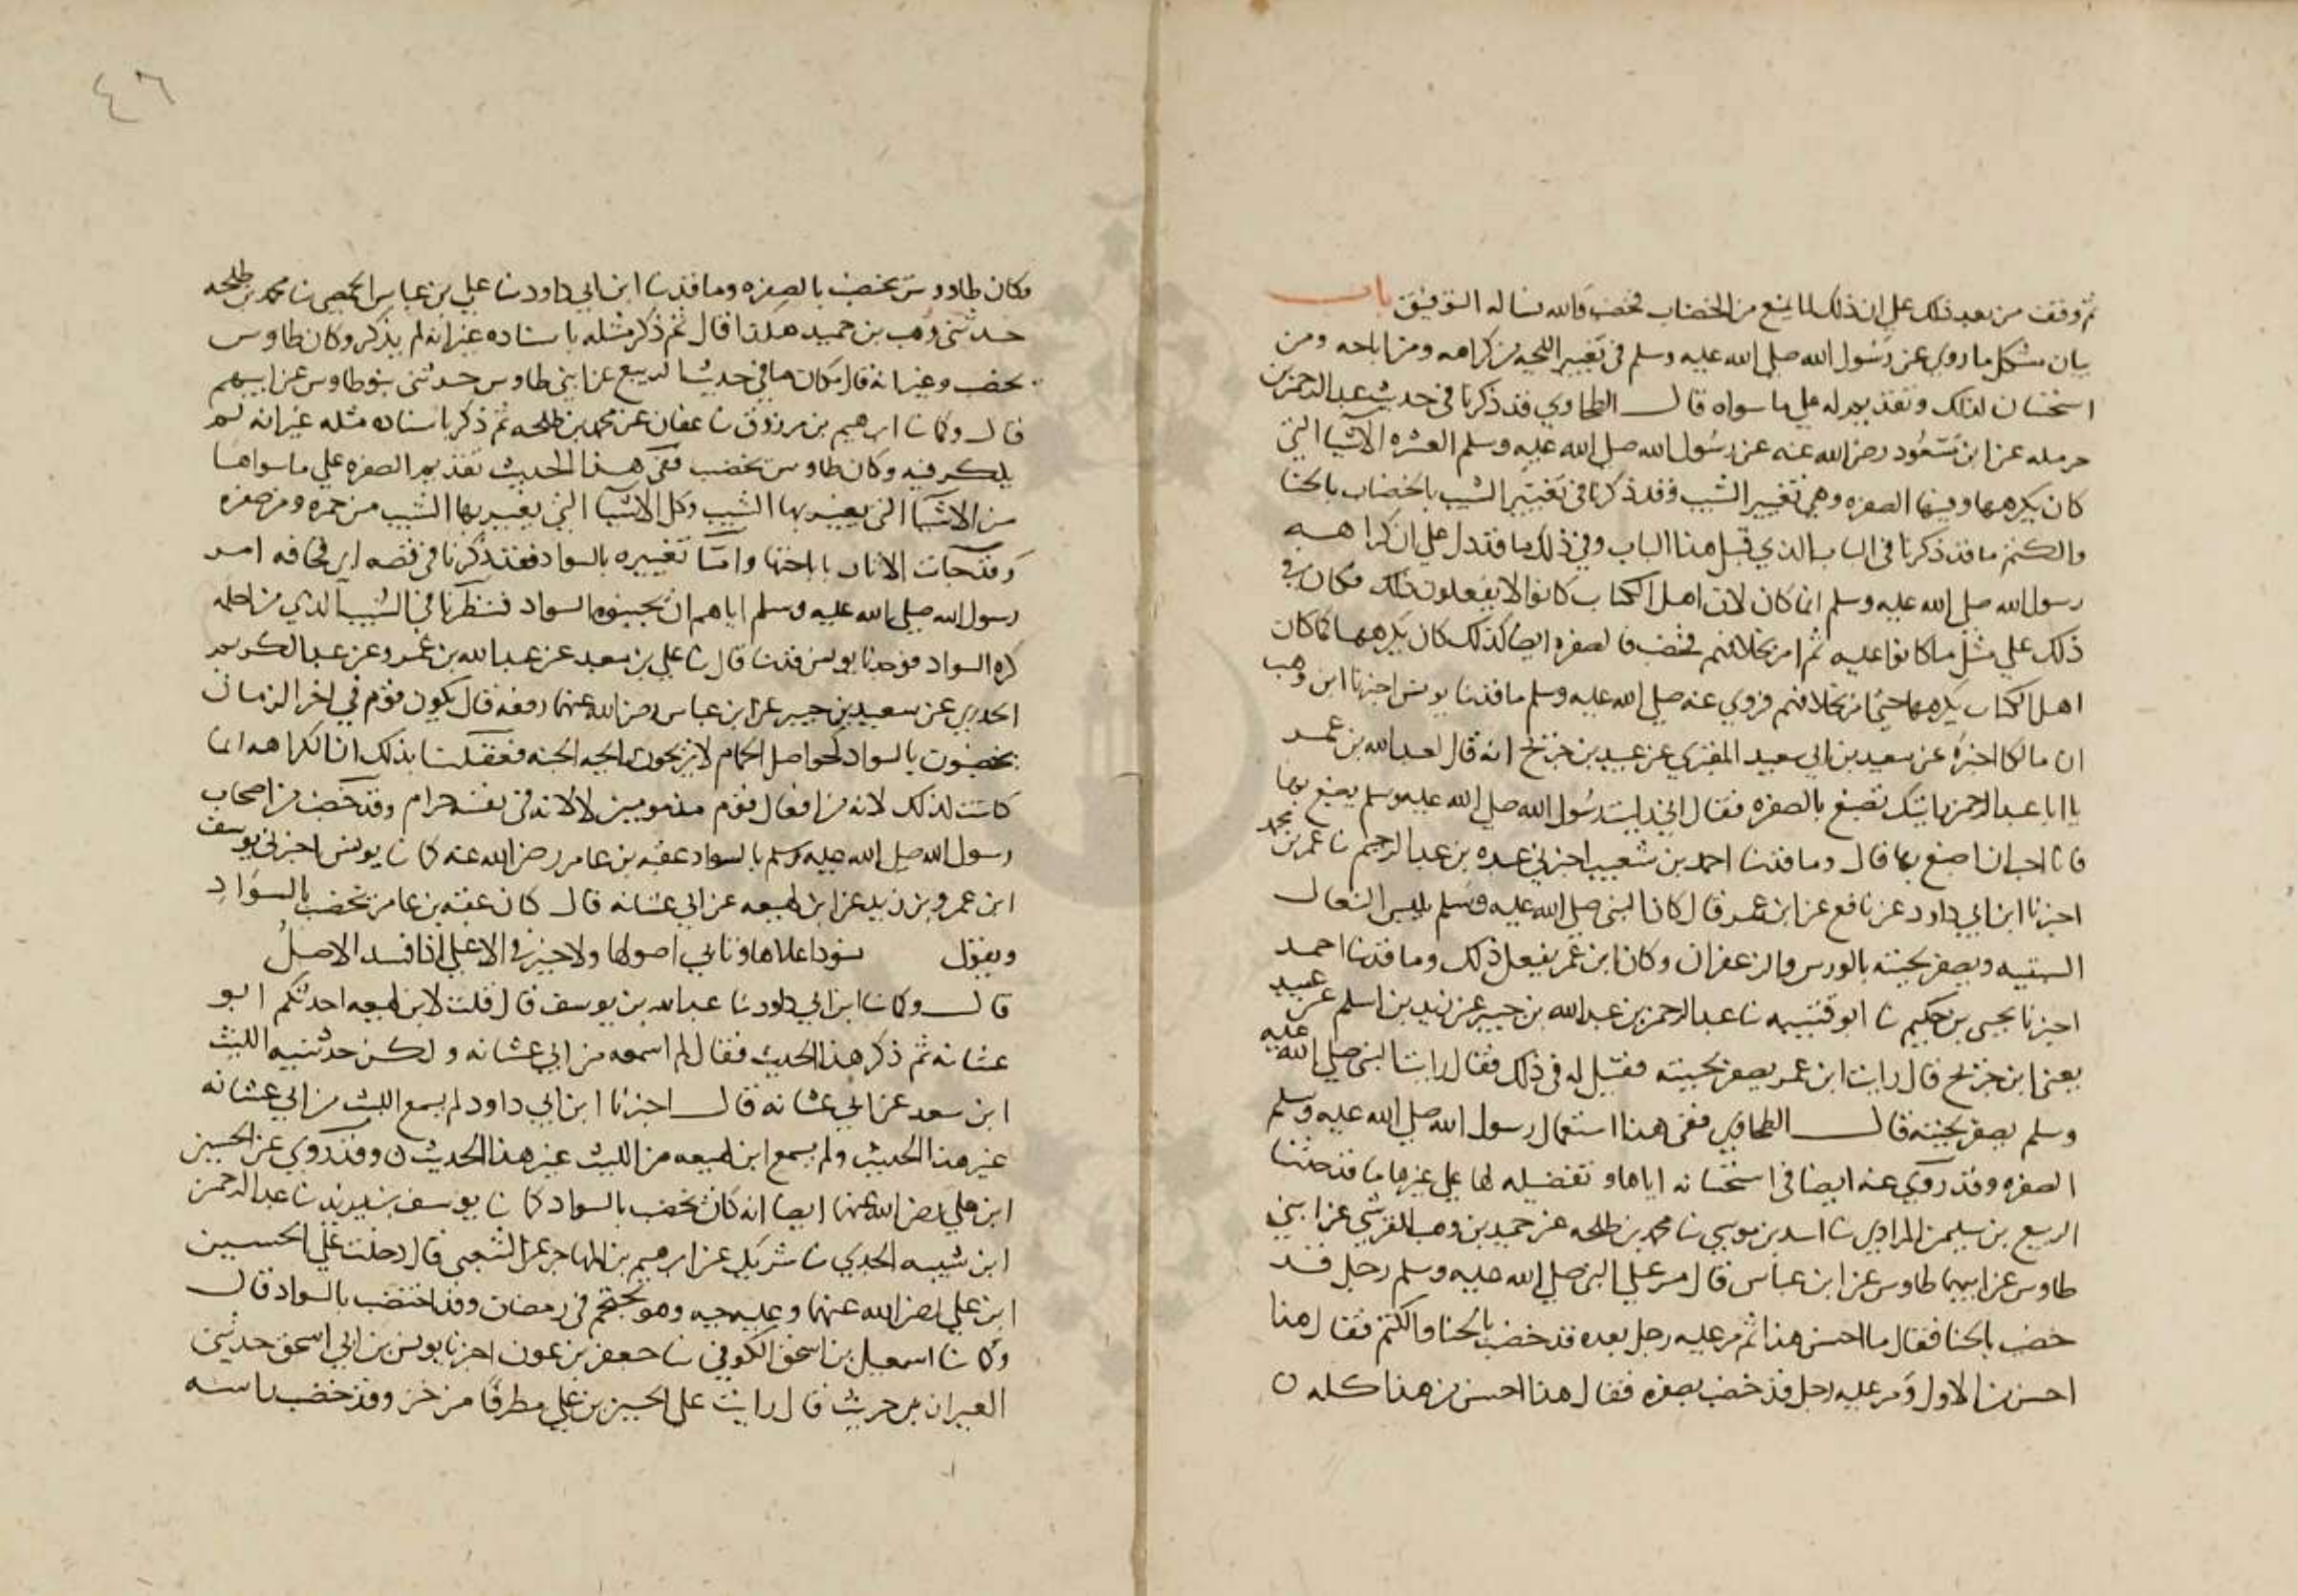 ثم وقفت من بعد ذلك على ان ذلك لما يمنع من الخضاب فخضب والله نساله التوفيق باب
بيان مشكل ما روي عن رسول الله صلى الله عليه وسلم في تغيير اللحيه من كراهه ومن اباحه ومن
استحسان لذلك وتقديم له على ما سواه قال الطحاوي قد ذكرنا في حديث عبد الرحمن بن
حرمله عن ابن مسعود رضي الله عنه عن رسول الله صلى الله عليه وسلم العشره الاشيا التي
كان يكرهها وفيها الصفره وهي تغيير الشيب وقد ذكرنا في تغيير الشيب بالخضاب بالحنا
والكتم ما قد ذكرنا في الباب الذي قبل هذا الباب وفي ذلك ما قد دل على ان كراهه
رسول الله صلى الله عليه وسلم انما كان لان اهل الكتاب كانوا لا يفعلون ذلك فكان في
ذلك على مثل ما كانوا عليه ثم امر بخلافهم فخضب فالصفره ايضا كذلك كان يكرهها لما كان
اهل الكتاب يكرهها حتى امر بخلافهم فروي عنه صلى الله عليه وسلم ما قد نا يونس اخبرنا ابن وهب
ان مالكا اخبره عن سعيد بن ابي سعيد المقبري عن عبيد بن جريج انه قال لعبد الله بن عمر
يا ابا عبد الرحمن رايتك تصبغ بالصفره فقال اني رايت رسول الله صلى الله عليه وسلم يصبغ بها
فانا احب ان اصبغ بها قال وما قد نا احمد بن شعيب اخبرني عبده بن عبد الرحيم نا عمرو بن محمد
اخبرنا ابن ابي داود عن نافع عن ابن عمر قال كان النبي صلى الله عليه وسلم يلبس النعال
السبتيه ويصفر لحيته بالورس والزعفران وكان ابن عمر يفعل ذلك وما قد نا احمد
اخبرنا يحيى بن حكيم نا ابو قتيبه نا عبد الرحمن بن عبد الله بن جبير عن زيد بن اسلم عن عبيد
يعني ابن جريج قال رايت ابن عمر يصفر لحيته فقيل له في ذلك فقال رايت النبي صلى الله عليه
وسلم يصفر لحيته قال الطحاوي ففي هذا استعمال رسول الله صلى الله عليه وسلم
الصفره وقد روي عنه ايضا في استحسانه اياها وتفضيله لها على غيرها ما قد حدثنا
الربيع بن سليمن المرادي نا اسد بن موسى نا محمد بن طلحه عن حميد بن وهب القرشي عن ابني
طاوس عن ابيهما طاوس عن ابن عباس قال مر على النبي صلى الله عليه وسلم رجل قد
خضب بالحنا فقال ما احسن هذا ثم مر عليه رجل بعده قد خضب بالحنا والكتم فقال هذا
احسن من الاول ومر عليه رجل قد خضب بصفره فقال هذا احسن من هذا كله ن
٤٦
وكان طاووس يخضب بالصفره وما قد نا ابن ابي داود نا علي بن عياش الحمصي نا محمد بن طلحه
حدثني وهب بن حميد هكذا قال ثم ذكر مثله باسناده غير انه لم يذكر وكان طاوس
يخضب وغير انه قال مكان ما في حديث الربيع عن ابني طاوس حدثني بنو طاوس عن ابيهم
قال وكما نا ابرهيم بن مرزوق نا عفان عن محمد بن طلحه ثم ذكر باسناده مثله غير انه لم
يذكر فيه وكان طاوس يخضب ففي هذا الحديث تقديم الصفره على ما سواها
من الاشيا التي يغير بها الشيب وكل الاشيا التي يغير بها الشيب من حمره ومن صفره
وقد جات الاثار باباحتها واما تغييره بالسواد فقد ذكرنا في قصه ابي قحافه امر
رسول الله صلى الله عليه وسلم اياهم ان يجنبوه السواد فنظرنا في السبب الذي من اجله
كره السواد فوجدنا يونس قد نا قال نا علي بن معبد عن عبيد الله بن عمرو عن عبد الكريم
الجزري عن سعيد بن جبير عن ابن عباس رضي الله عنهما رفعه قال يكون قوم في اخر الزمان
يخضبون بالسواد كحواصل الحمام لا يريحون رايحه الجنه فعقلنا بذلك ان الكراهه انما
كانت لذلك لانه من افعال قوم مذمومين لا لانه في نفسه حرام وقد خضب من اصحاب
رسول الله صلى الله عليه وسلم بالسواد عقبه بن عامر رضي الله عنه كما نا يونس اخبرني يوسف
ابن عمرو بن يزيد عن ابن لهيعه عن ابي عشانه قال كان عقبه بن عامر يخضب بالسواد
ويقول نسود اعلاها وتابى اصولها ولا خير في الاعلى اذا فسد الاصل
قال وكما نا ابن ابي داود نا عبد الله بن يوسف قال قلت لابن لهيعه احدثكم ابو
عشانه ثم ذكر هذا الحديث فقال لم اسمعه من ابي عشانه ولكن حدثنيه الليث
ابن سعد عن ابي عشانه قال اخبرنا ابن ابي داود لم يسمع الليث من ابي عشانه
غير هذا الحديث ولم يسمع ابن لهيعه من الليث غير هذا الحديث ن وقد روي عن الحسين
ابن علي رضي الله عنهما ايضا انه كان يخضب بالسواد كما نا يوسف بن يزيد نا عبد الرحمن
ابن شيبه الجدي نا شريك عن ابرهيم بن المهاجر عن الشعبي قال دخلت على الحسين
ابن علي رضي الله عنهما وعليه جبه وهو يحتجم في رمضان وقد اختضب بالسواد قال
وكما نا اسمعيل بن اسحق الكوفي نا جعفر بن عون اخبرنا يونس بن ابي اسحق حدثني
العيزار بن حريث قال رايت على الحسين بن علي مطرفا من خز وقد خضب راسه